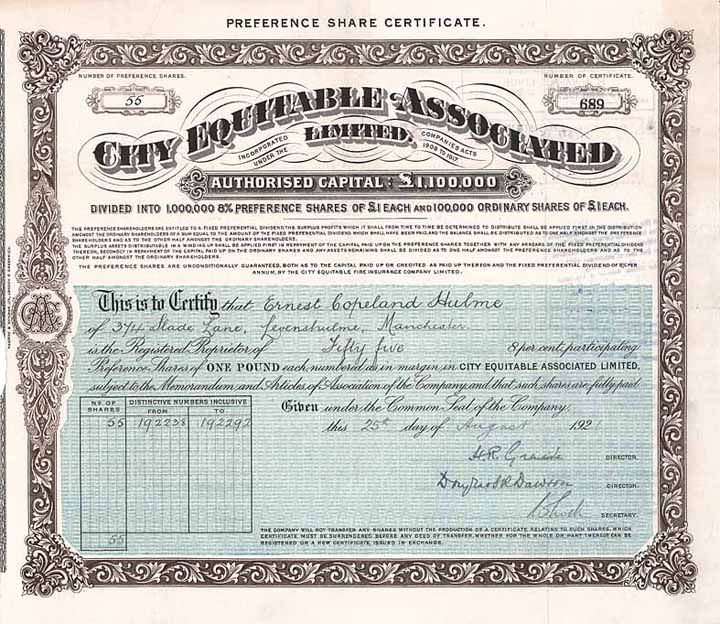 PREFERENCE SHARE CERTIFICATE.
NUMBER OF PREFERENCE SHARES.
55
NUMBER OF CERTIFICATE.
689
CITY EQUITABLE ASSOCIATED
LIMITED.
INCORPORATED UNDER THE
COMPANIES ACTS 1908 TO 1917.
AUTHORISED CAPITAL: £1,100,000
DIVIDED INTO 1,000,000 8% PREFERENCE SHARES OF £1 EACH AND 100,000 ORDINARY SHARES OF £1 EACH.
THE PREFERENCE SHAREHOLDERS ARE ENTITLED TO A FIXED PREFERENTIAL DIVIDEND. THE SURPLUS PROFITS WHICH IT SHALL FROM TIME TO TIME BE DETERMINED TO DISTRIBUTE SHALL BE APPLIED FIRST IN THE DISTRIBUTION
AMONGST THE ORDINARY SHAREHOLDERS OF A SUM EQUAL TO THE AMOUNT OF THE FIXED PREFERENTIAL DIVIDEND WHICH SHALL HAVE BEEN PAID, AND THE BALANCE SHALL BE DISTRIBUTED AS TO ONE HALF AMONGST THE PREFERENCE
SHAREHOLDERS AND AS TO THE OTHER HALF AMONGST THE ORDINARY SHAREHOLDERS.
THE SURPLUS ASSETS DISTRIBUTABLE IN A WINDING UP SHALL BE APPLIED FIRST IN REPAYMENT OF THE CAPITAL PAID UPON THE PREFERENCE SHARES TOGETHER WITH ANY ARREARS OF THE FIXED PREFERENTIAL DIVIDEND
THEREON, THEREAFTER IN REPAYMENT OF THE CAPITAL PAID UP ON THE ORDINARY SHARES AND ANY ASSETS REMAINING SHALL BE DIVIDED AS TO ONE HALF AMONGST THE PREFERENCE SHAREHOLDERS AND AS TO THE
OTHER HALF AMONGST THE ORDINARY SHAREHOLDERS.
THE PREFERENCE SHARES ARE UNCONDITIONALLY GUARANTEED, BOTH AS TO THE CAPITAL PAID UP OR CREDITED AS PAID UP THEREON AND THE FIXED PREFERENTIAL DIVIDEND OF 8% PER
ANNUM, BY THE CITY EQUITABLE FIRE INSURANCE COMPANY LIMITED.
This is to Certify that Ernest Copeland Hulme
of 374 Slade Lane, Levenshulme, Manchester
is the Registered Proprietor of Fifty five 8 per cent, participating
Preference Shares of ONE POUND each, numbered as in margin, in CITY EQUITABLE ASSOCIATED LIMITED,
subject to the Memorandum and Articles of Association of the Company, and that such shares are fully paid
Given under the Common Seal of the Company,
this 25th day of August 192
NO. OF SHARES
DISTINCTIVE NUMBERS INCLUSIVE
FROM TO
55 192238 192292
55
DIRECTOR.
Douglas R Dawson DIRECTOR.
SECRETARY.
THE COMPANY WILL NOT TRANSFER ANY SHARES WITHOUT THE PRODUCTION OF A CERTIFICATE RELATING TO SUCH SHARES, WHICH
CERTIFICATE MUST BE SURRENDERED BEFORE ANY DEED OF TRANSFER, WHETHER FOR THE WHOLE OR PART THEREOF CAN BE
REGISTERED OR A NEW CERTIFICATE ISSUED IN EXCHANGE.